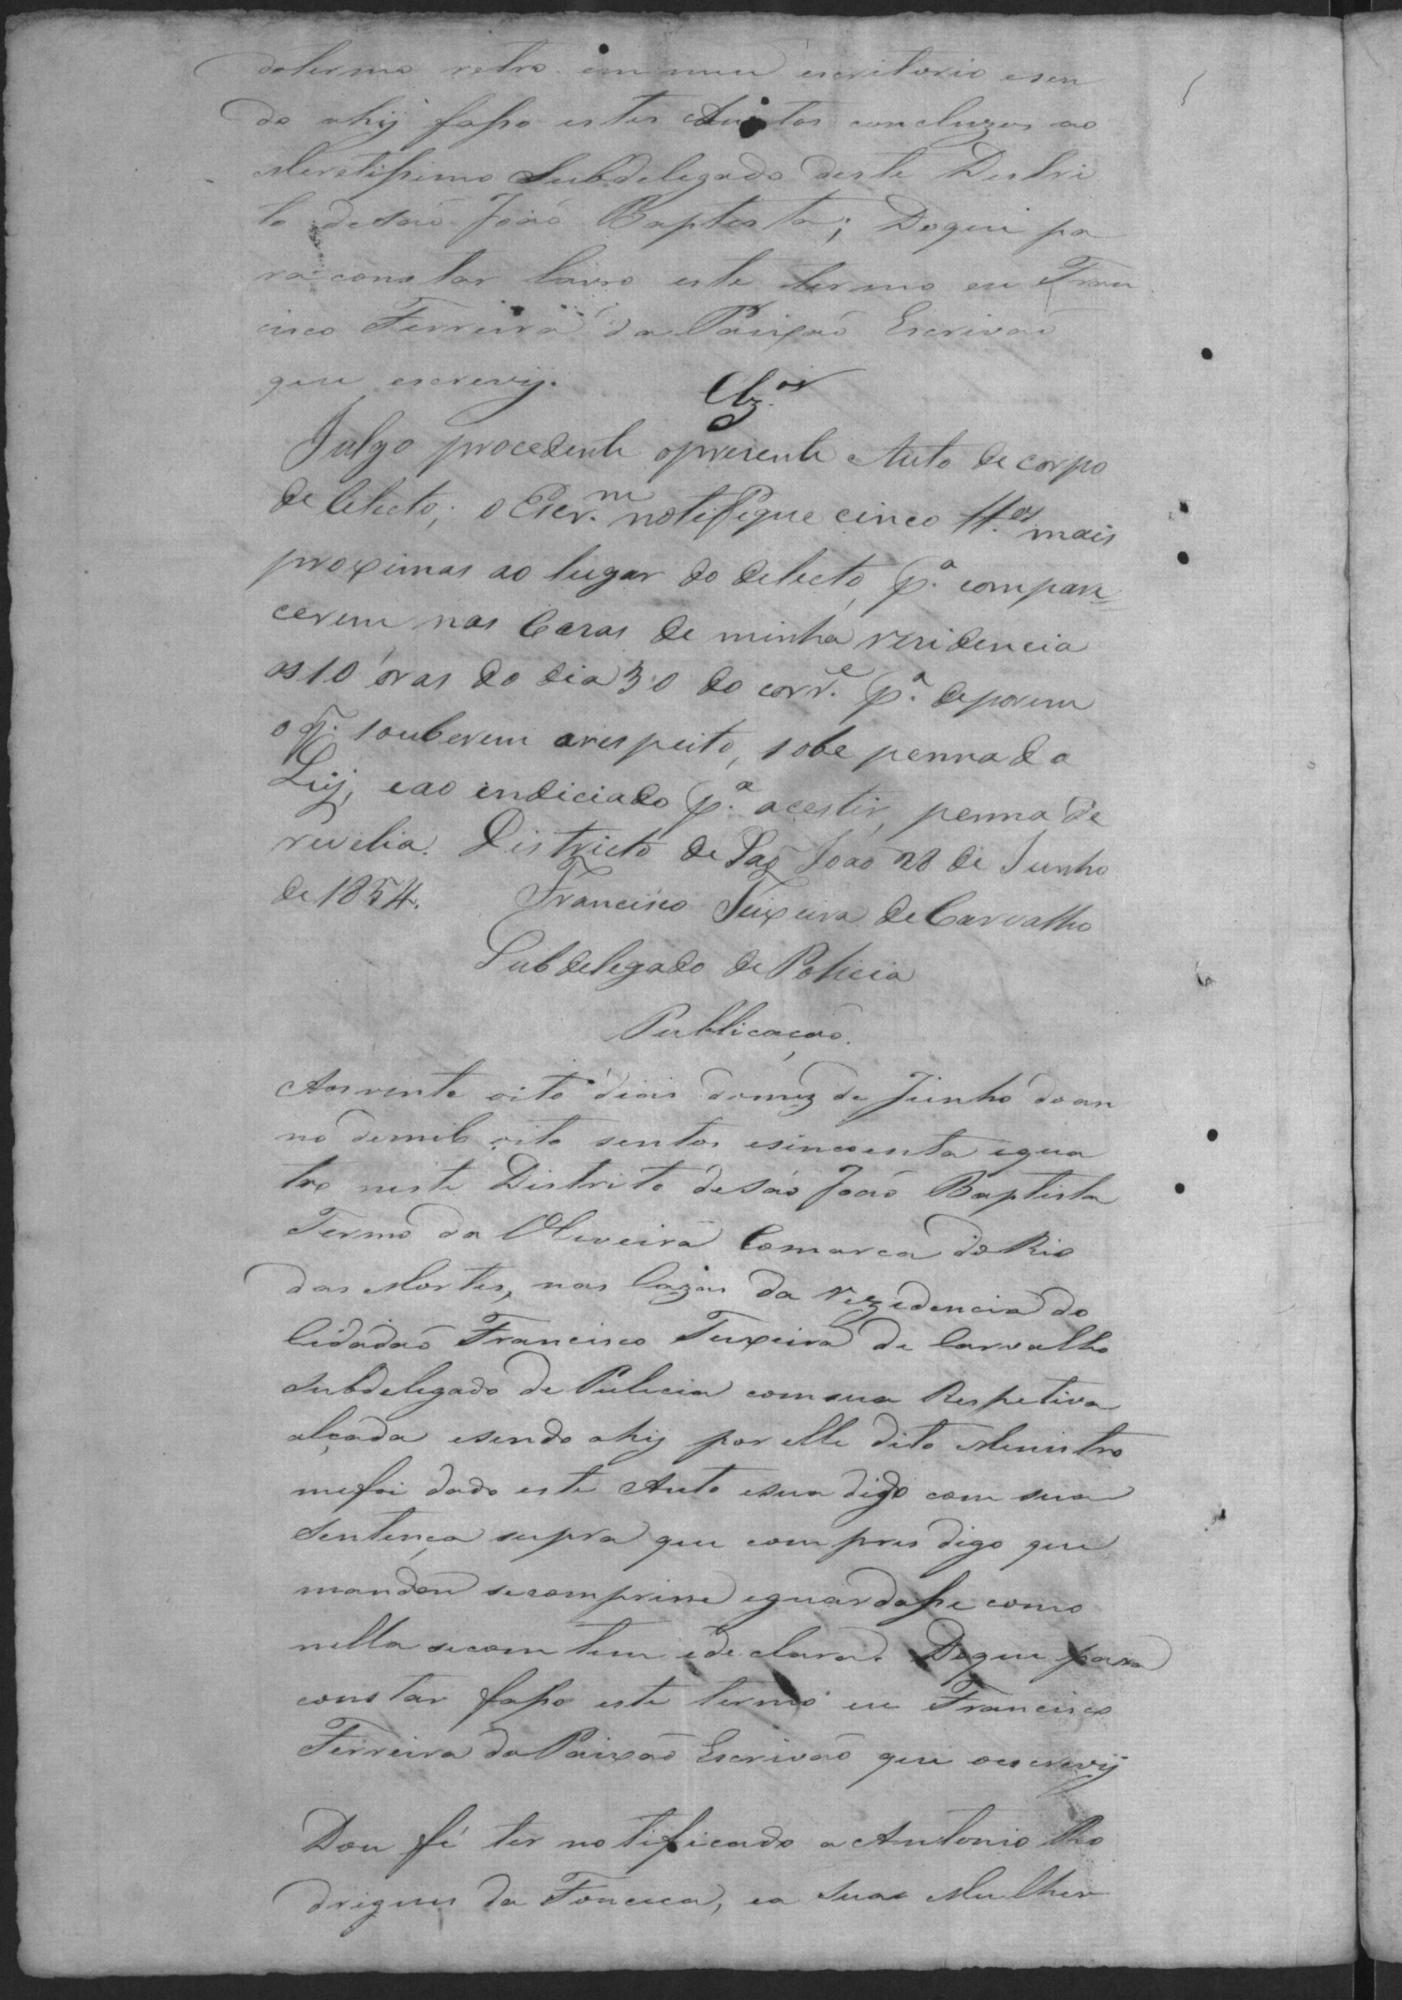 dotermo retro em meu escritorio esen
do ahij faço estes Autos concluzos ao
Meretissimo Subdelegado deste Distri
to desaõ Joaõ Baptesta; Doque pa
ra constar lavro este termo eu Fran
cisco Ferreira da Paixaõ Escrivaõ
que escrevij.
Clz.os
Julgo procedente opresente Auto de corpo
de delicto; o Escr.m notefeque cinco tt.as mais
proximas ao lugar do delicto, p.a compare=
cerem nas Cazas de minha residencia
as 10 óras do dia 30 do corr.e p.a deporem
o q. souberem arespeito, sobe penna da
Leij, eao endiciado p.a acestir, penna de
revelia. Districto de Saõ Joaõ 28 de Junho
de 1854. Francisco Teixeira de Carvalho
Subdelegado de Policia
Publicaçaõ.
Aos vente oito dias domez de Junho do an
no demil oito sentos esincoenta equa
tro neste Distrito desaõ Joaõ Baptista
Termo da Oliveira Comarca do Rio
das Mortes, nas Cazas da rezedencia do
Cidadaõ Francisco Teixeira de Carvalho
Subdelegado de Pulicia comsua Respetiva
alçada esendo ahij por elle dito Menistro
mefoi dado este Auto esua digo com sua
Sentença supra que com pris digo que
mandou secomprisse eguardasse como
nella secomtem edeclara. Doque para
constar faço este termo eu Francisco
Ferreira da Paixaõ Escrivaõ que oescrevij
Dou fé ter notificado a Antonio Ro
drigues da Fonceca, ea Sua Mulher